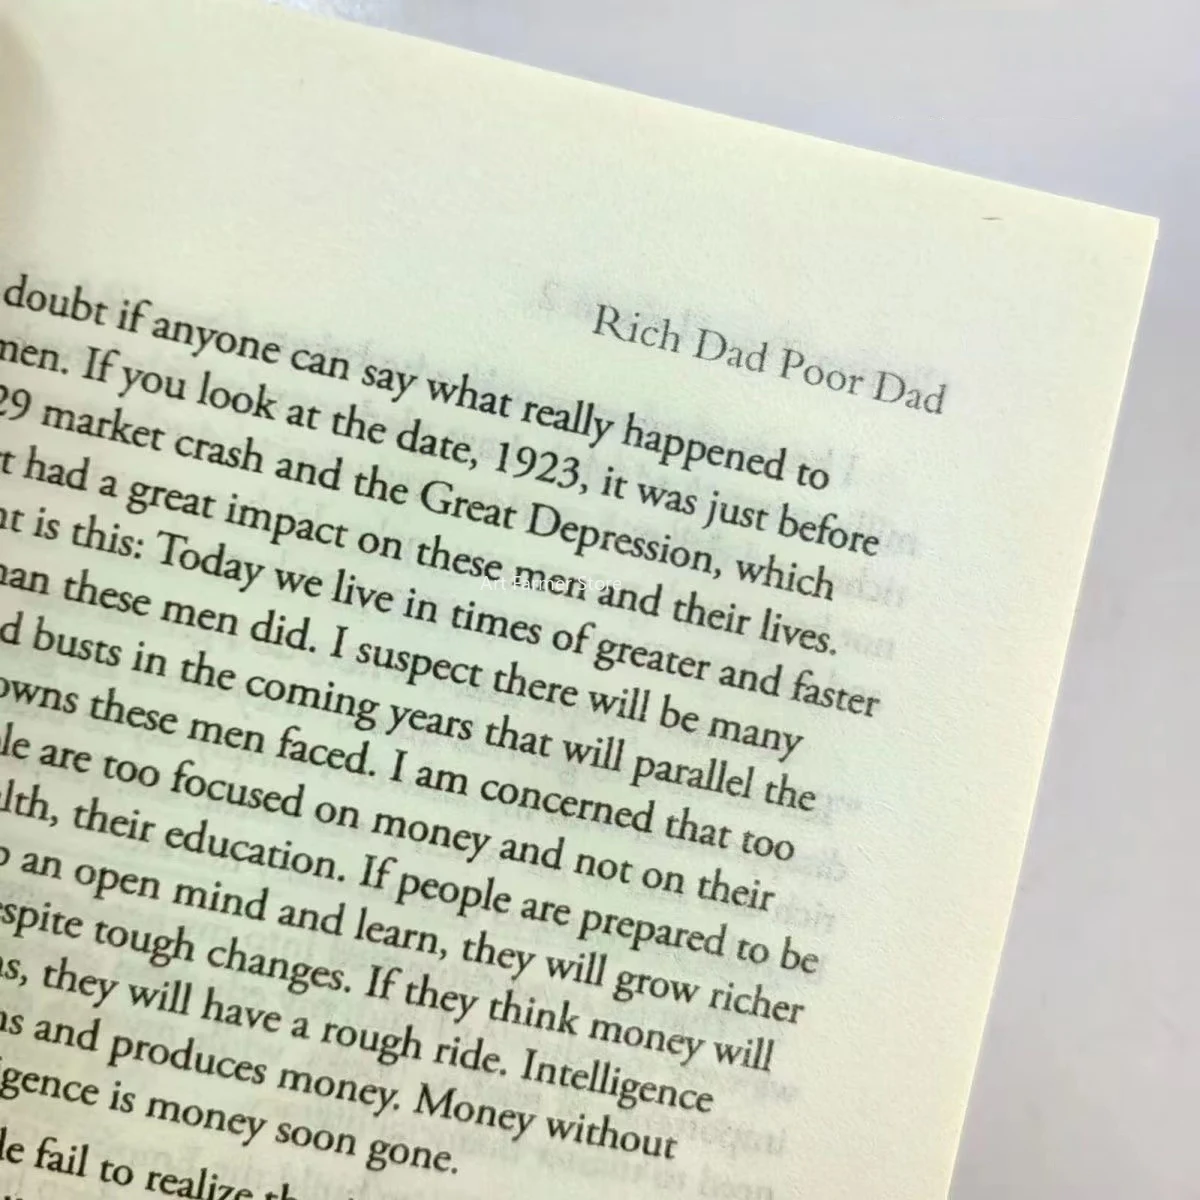 Rich Dad Poor Dad
doubt if anyone can say what really happened to
men. If you look at the date, 1923, it was just before
29 market crash and the Great Depression, which
t had a great impact on these men and their lives.
nt is this: Today we live in times of greater and faster
han these men did. I suspect there will be many
d busts in the coming years that will parallel the
owns these men faced. I am concerned that too
le are too focused on money and not on their
lth, their education. If people are prepared to be
p an open mind and learn, they will grow richer
espite tough changes. If they think money will
ns, they will have a rough ride. Intelligence
ns and produces money. Money without
igence is money soon gone.
le fail to realize
Art Farmer Store